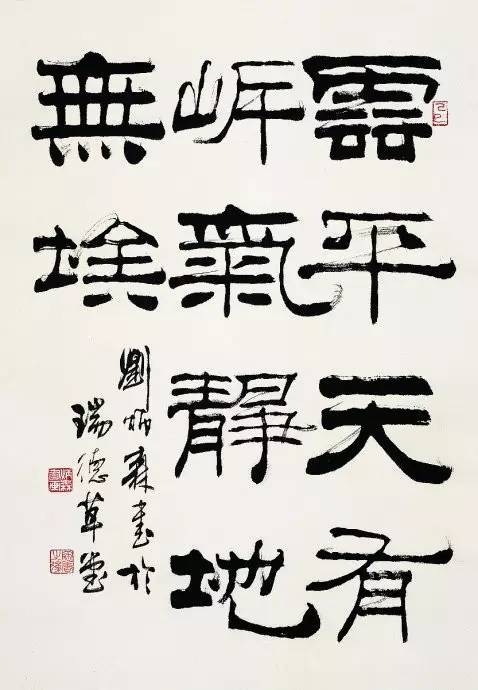 雲平天有
岸氣靜地
無埃
劉炳森書於
瑞德草堂